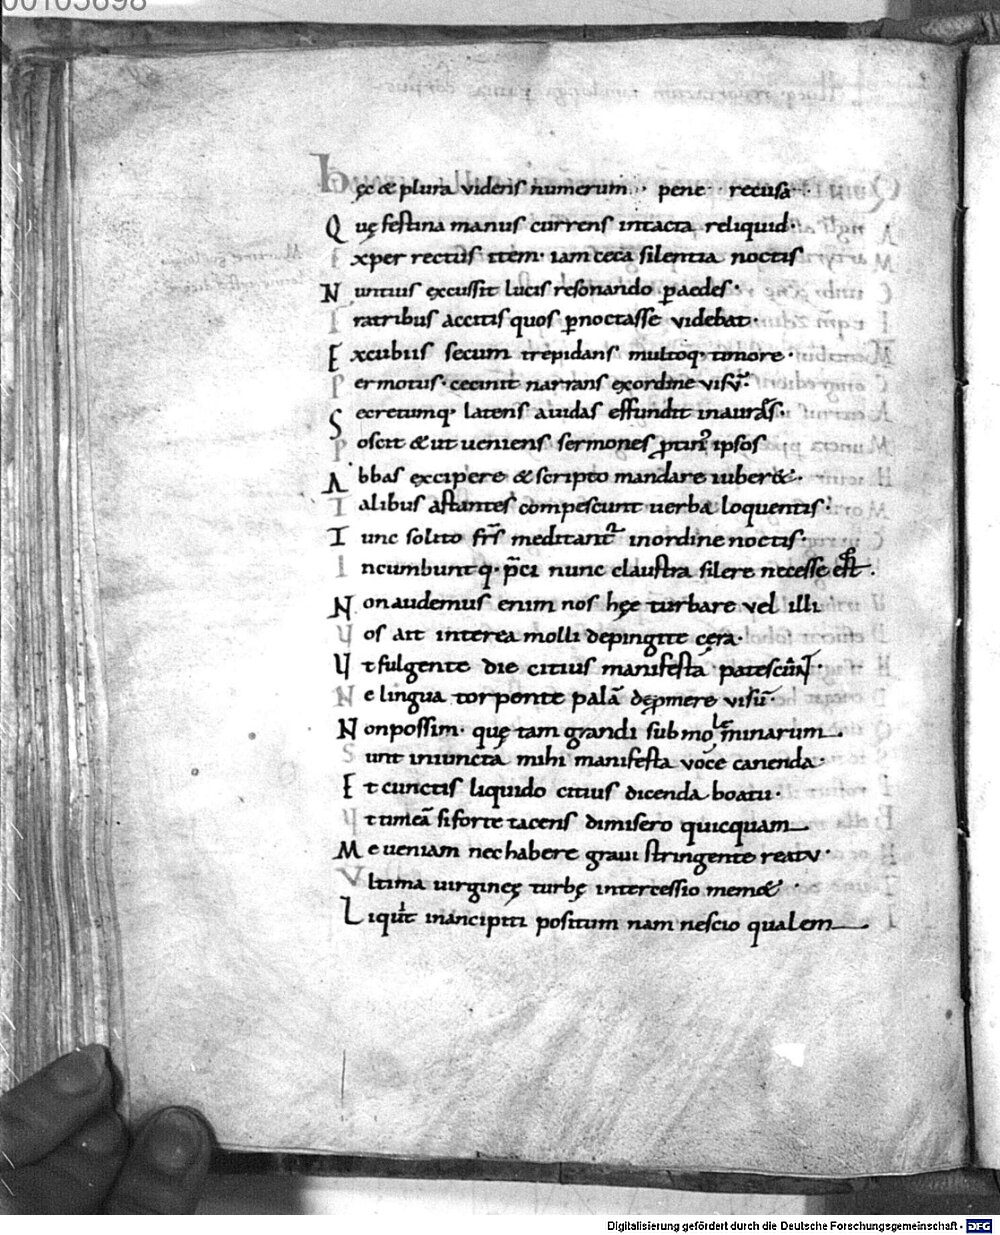 00105898
Hęc & plura videns numerum pene recusa
Quę festina manus currens intacta reliquid·
Exper rectus item· iam ceca silentia noctis
Nuntius excussit lucis resonando p̄ aedes·
Fratribus accitis quos p̄noctasse videbat·
Excubiis secum trepidans multoq· timore·
Permotus· cecinit narrans exordine visū·
Secretumq· latens auidas effundit in aures·
Poscit & ut ueniens sermones ipsos
Abbas excipere & scripto mandare iuber&·
Talibus astantes compescunt uerba loquentis·
Tunc solito frs̄ meditant inordine noctis·
Incumbuntq· p̄ci nunc claustra silere necesse est.
Non audemus enim nos hęc turbare vel illi
Vos ait interea molli depingite cęra·
Vt fulgente die citius manifesta patescunt·
Ne lingua torpente palā dep̄mere visū·
Non possim· quę tam grandi sub mole minarum
Sunt iniuncta mihi manifesta voce canenda·
Et cunctis liquido citius dicenda boatu·
Vt timeā si forte tacens dimisero quicquam
Me ueniam nec habere graui stringente reatu·
Vltima uirgineę turbę intercessio mem&·
Liquit in ancipiti positum nam nescio qualem
Digitalisierung gefördert durch die Deutsche Forschungsgemeinschaft - DFG